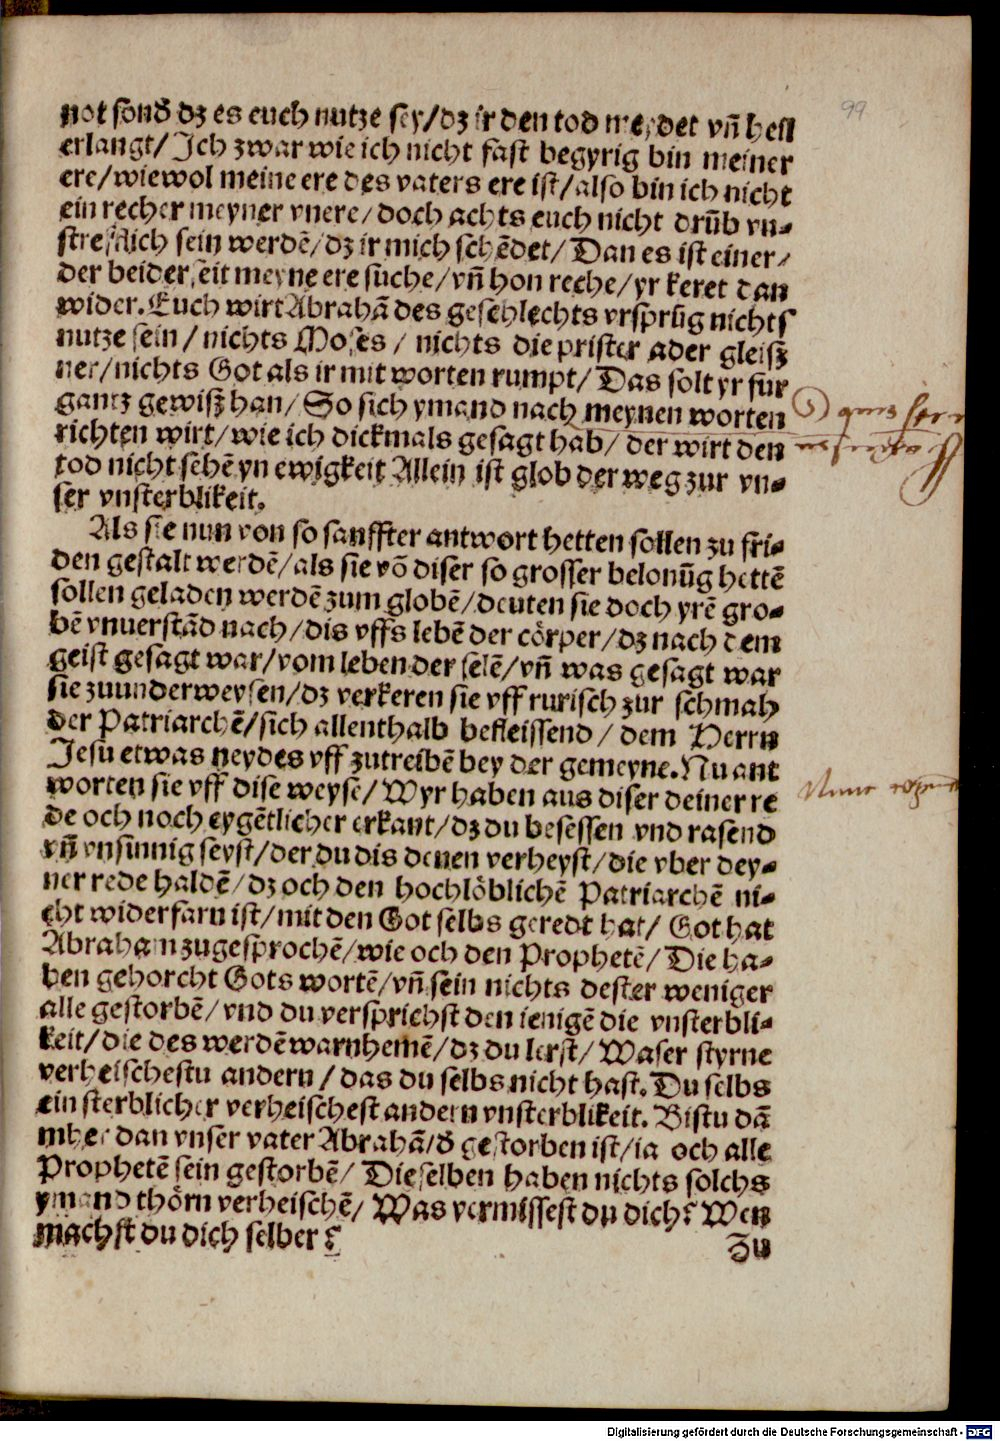 99
not sonđ dz es euch nutze sey/dz ir den tod meydet vñ heil
erlangt/ Ich zwar wie ich nicht fast begyrig bin meiner
ere/wiewol meine ere des vaters ere ist/also bin ich nicht
ein recher meyner vnere/doch achts euch nicht drūb vn-
strefflich sein werdē/dz ir mich schēdet/ Dan es ist einer/
der beiderseit meyne ere suche/vñ hon reche/yr keret dan
wider. Euch wirt Abrahā des geschlechts vrsprūg nichts
nutze sein/ nichts Moses/ nichts die prister ader gleisz
ner/nichts Got als ir mit worten rumpt/ Das solt yr fur
gantz gewisz han/ So sich ymand nach meynen worten
richten wirt/wie ich dickmals gesagt hab/ der wirt den
tod nicht sehē yn ewigkeit Allein ist glob der weg zur vn-
ser vnsterblikeit.
Als sie nun von so sanffter antwort hetten sollen zu fri-
den gestalt werdē/als sie vō diser so grosser belonūg hettē
sollen geladen werdē zum globē/deuten sie doch yrē gro-
bē vnuerstād nach/dis vffs lebē der cörper/dz nach dem
geist gesagt war/vom leben der selē/vñ was gesagt war
sie zuunderweysen/dz verkeren sie vff rurisch zur schmah
der Patriarchē/sich allenthalb befleissend/ dem Herrn
Jesu etwas neydes vff zutreibē bey der gemeyne. Nu ant
worten sie vff dise weyse/ Wyr haben aus diser deiner re
de och noch eygētlicher erkant/dz du besessen vnd rasend
vñ vnsinnig seyst/der du dis denen verheyst/die vber dey-
ner rede haldē/dz och den hochlöblichē Patriarchē ni-
cht widerfarn ist/mit den Got selbs geredt hat/ Got hat
Abraham zugesprochē/wie och den Prophetē/ Die ha-
ben gehorcht Gots wortē/vñ sein nichts dester weniger
alle gestorbē/vnd du versprichst den ienigē die vnsterbli-
keit/die des werdē warnhemē/dz du lerst/ Waser styrne
verheischestu andern/das du selbs nicht hast. Du selbs
ein sterblicher verheischest andern vnsterblikeit. Bistu dā
mher dan vnser vater Abrahā/đ gestorben ist/ia och alle
Prophetē sein gestorbē/ Dieselben haben nichts solchs
ymand thörn verheischē/ Was vermissest du dich? Wen
machst du dich selber?
Zu
Digitalisierung gefördert durch die Deutsche Forschungsgemeinschaft - DFG